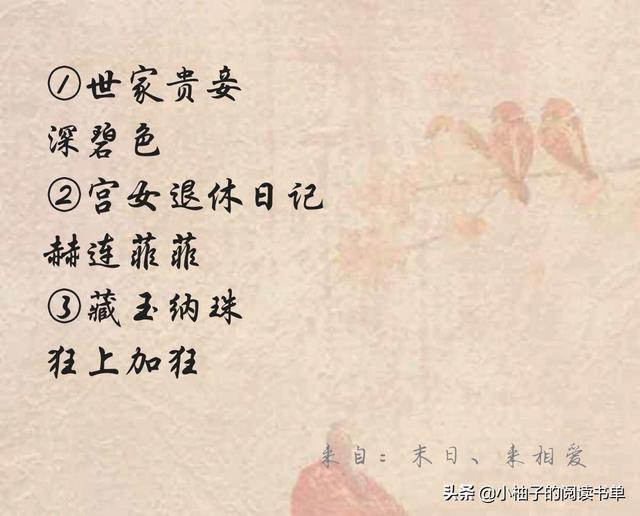 ①世家贵妾
深碧色
②宫女退休日记
赫连菲菲
③藏玉纳珠
狂上加狂
来自：末日、来相爱
头条 @小柚子的阅读书单